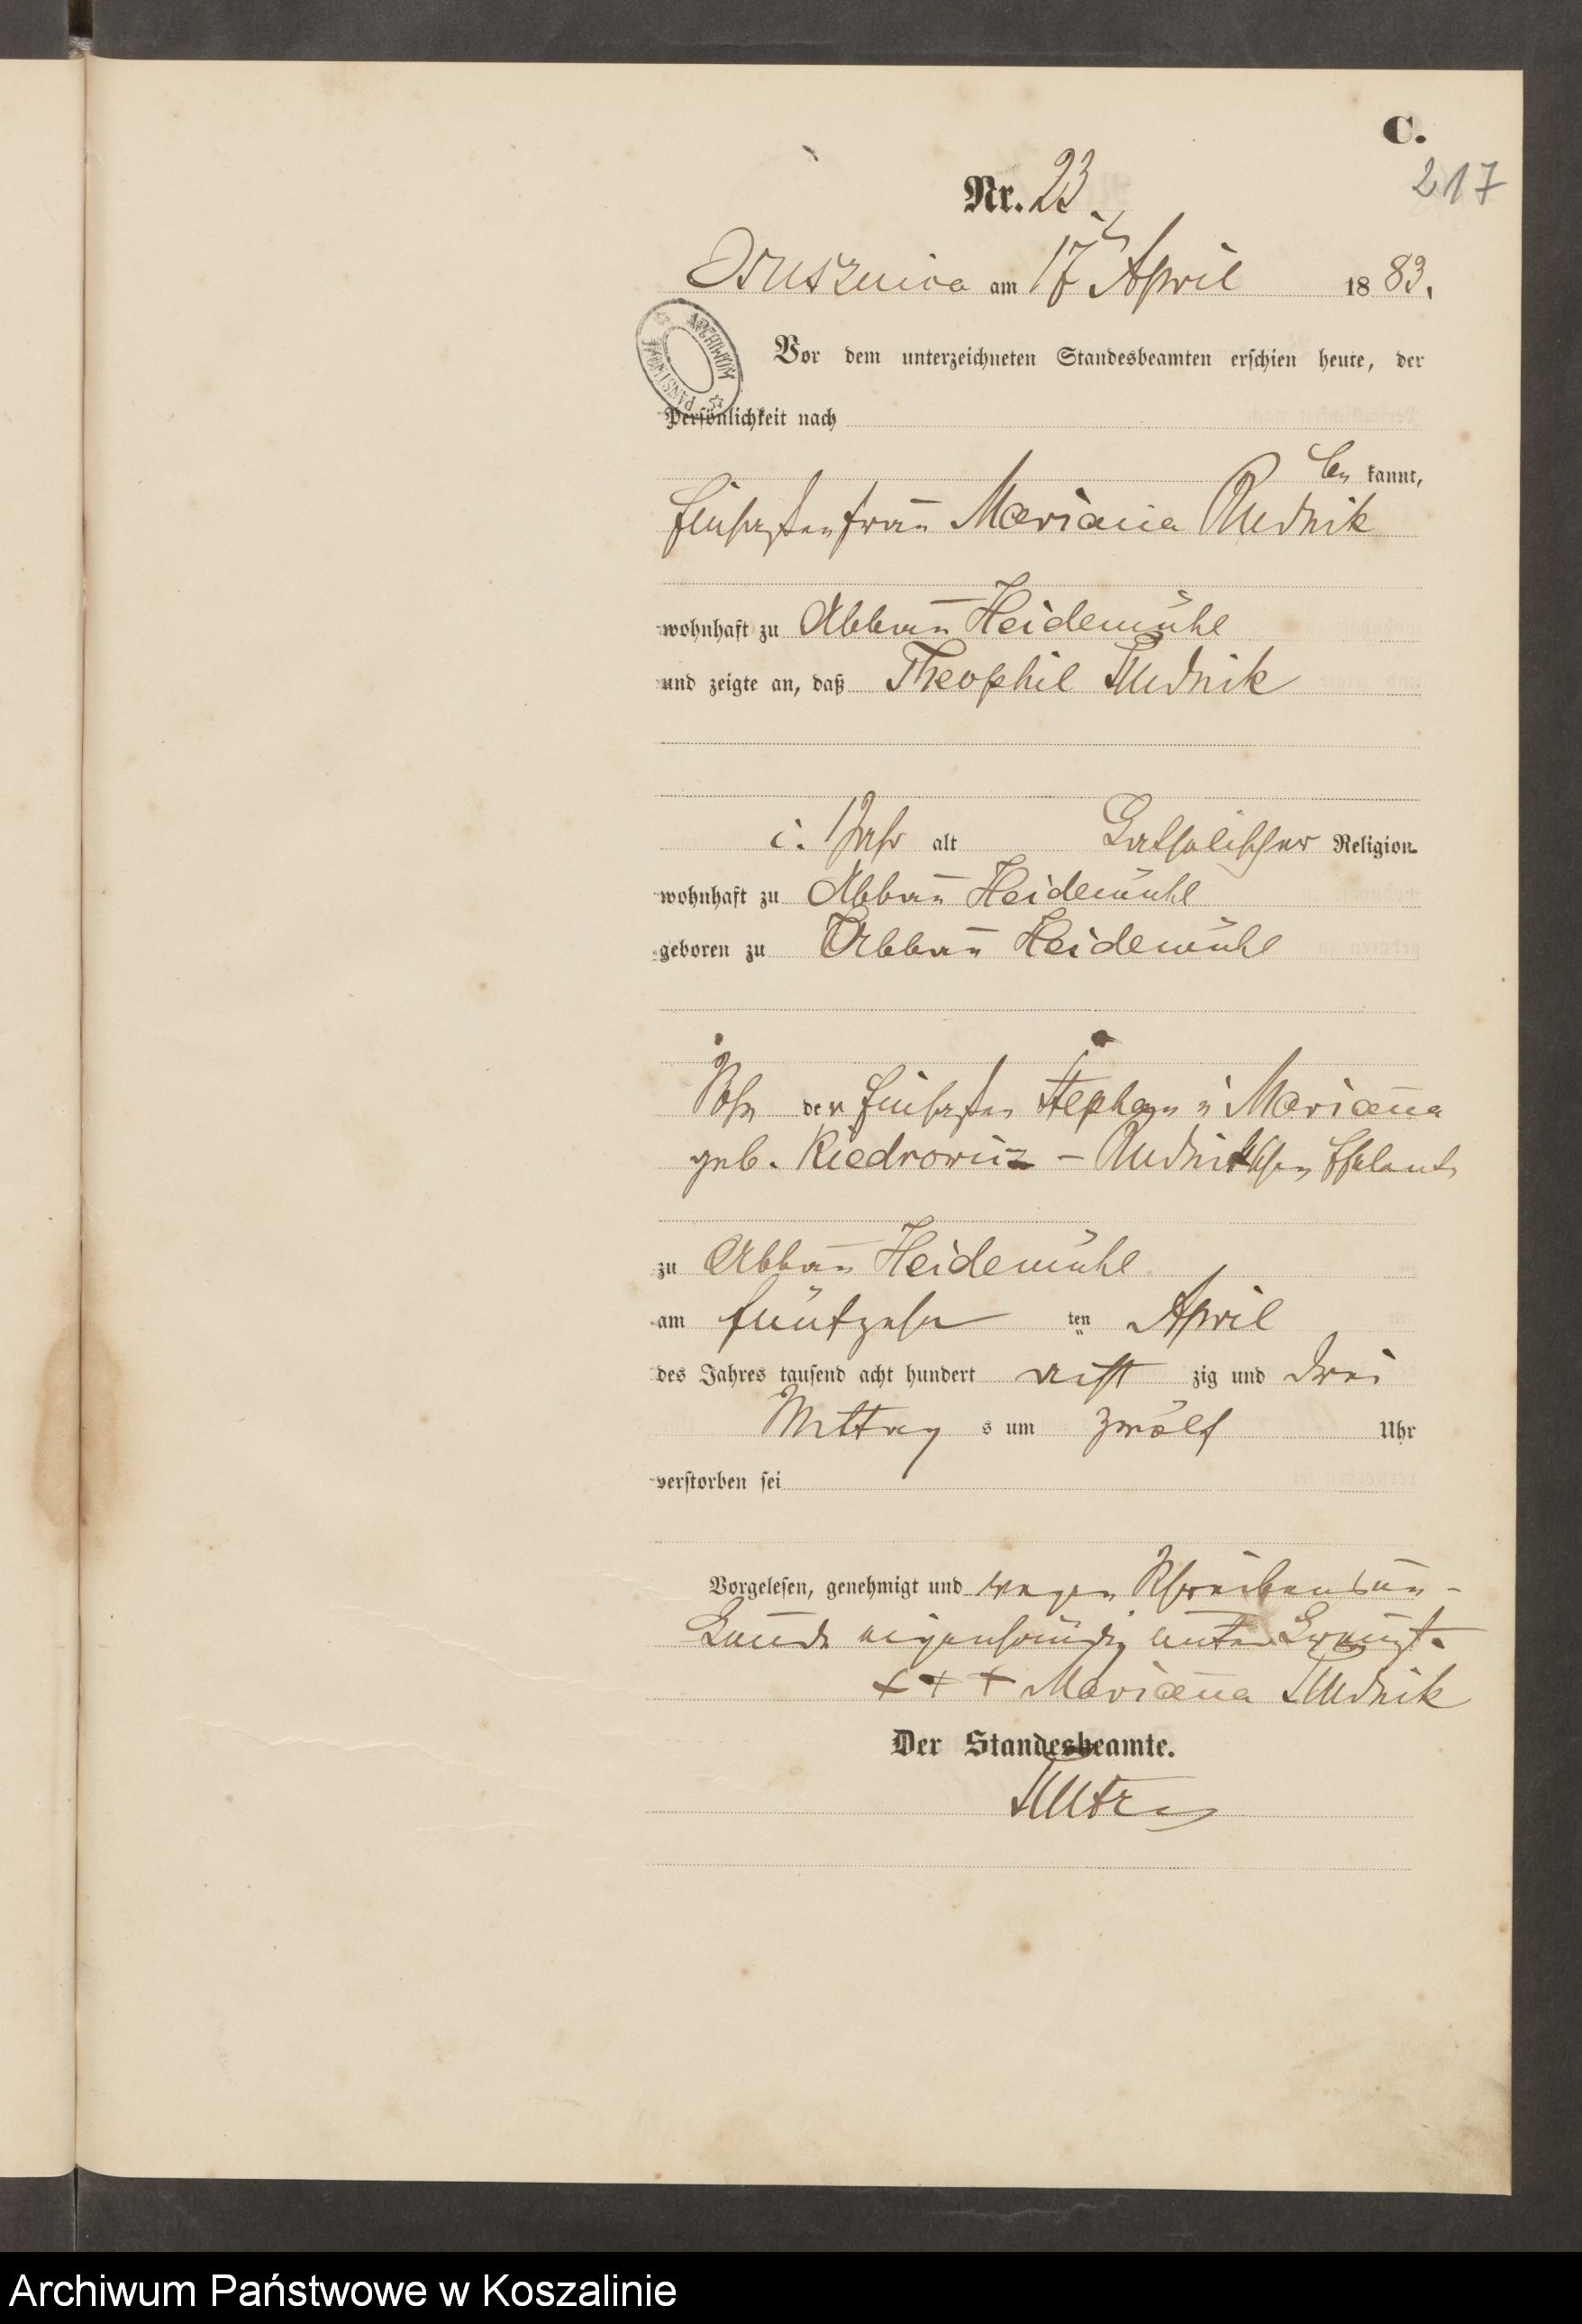 C.
217
Nr. 23.
Ossusznica am 17ᵗ April 1883.
ARCHIWUM PAŃSTWOWE
Vor dem unterzeichneten Standesbeamten erschien heute, der
Persönlichkeit nach
be kannt,
Einsassenfrau Mariana Rudnik
wohnhaft zu Abbau Heidemühl
und zeigte an, daß Theophil Rudnik
1 Jahr alt Katholischer Religion
wohnhaft zu Abbau Heidemühl
geboren zu Abbau Heidemühl
Sohn der Einsassen Stephan u Marianna
geb. Kiedrowicz - Rudnikschen Eheleute
zu Abbau Heidemühl
am fünfzehn ten April
des Jahres tausend acht hundert acht zig und drei
Mittag s um zwölf Uhr
verstorben sei
Vorgelesen, genehmigt und wegen Schreibensun-
kunde eigenhändig unterkreuzt.
+ + + Marianna Rudnik
Der Standesbeamte.
Archiwum Państwowe w Koszalinie